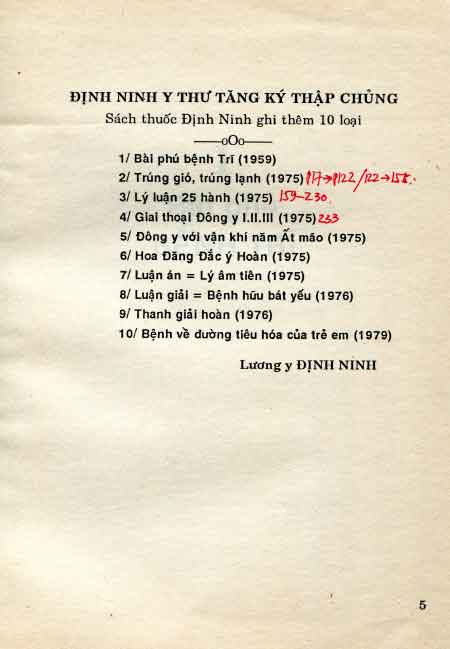 ĐỊNH NINH Y THƯ TĂNG KÝ THẬP CHỦNG
Sách thuốc Định Ninh ghi thêm 10 loại
——oOo——
1/ Bài phú bệnh Trĩ (1959)
2/ Trúng gió, trúng lạnh (1975) 117→122/122→158.
3/ Lý luận 25 hành (1975) 159-230.
4/ Giai thoại Đông y I.II.III (1975) 233
5/ Đông y với vận khí năm Ất mão (1975)
6/ Hoa Đăng Đắc ý Hoàn (1975)
7/ Luận án = Lý âm tiên (1975)
8/ Luận giải = Bệnh hữu bát yếu (1976)
9/ Thanh giải hoàn (1976)
10/ Bệnh về đường tiêu hóa của trẻ em (1979)
Lương y ĐỊNH NINH
5